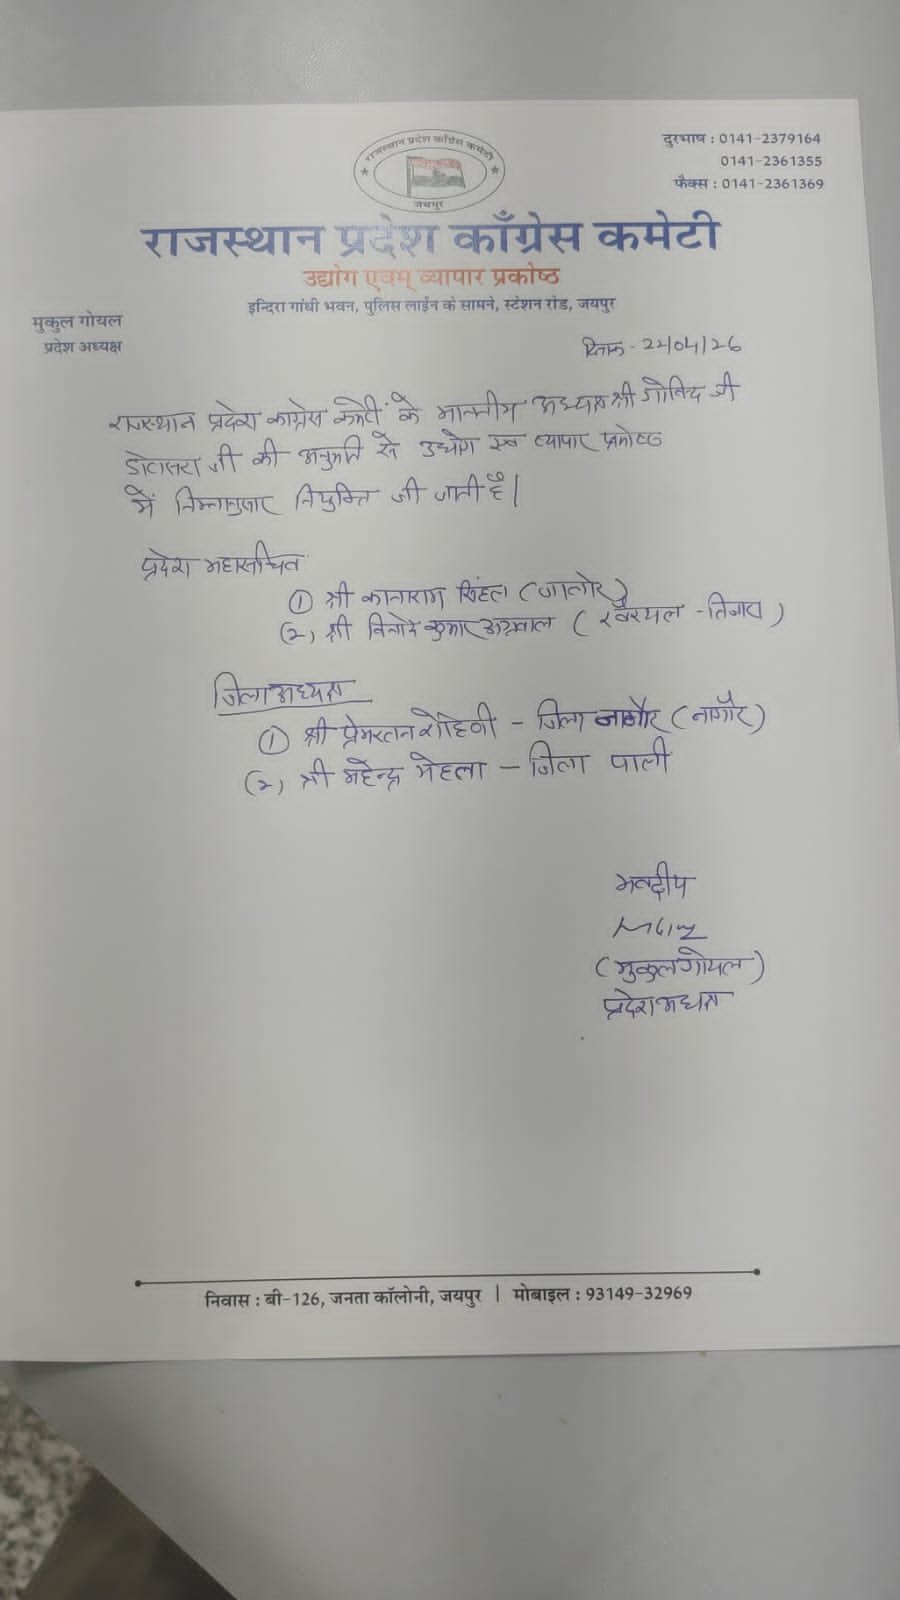 राजस्थान प्रदेश काँग्रेस कमेटी
जयपुर
दुरभाष : 0141-2379164
0141-2361355
फैक्स : 0141-2361369
राजस्थान प्रदेश काँग्रेस कमेटी
उद्योग एवम् व्यापार प्रकोष्ठ
इन्दिरा गांधी भवन, पुलिस लाईन के सामने, स्टेशन रोड, जयपुर
मुकुल गोयल
प्रदेश अध्यक्ष
दिनांक - 22/04/26
राजस्थान प्रदेश कांग्रेस कमेटी के माननीय अध्यक्ष श्री गोविंद जी
डोटासरा जी की अनुमति से उद्योग एवं व्यापार प्रकोष्ठ
में निम्नानुसार नियुक्ति की जाती है।
प्रदेश महासचिव
① श्री कानाराम सिंहल (जालोर)
(2) श्री विनोद कुमार अग्रवाल ( खैरथल - तिजारा )
जिला अध्यक्ष
① श्री प्रेमरतन रोहिणी - जिला नागौर (नागौर)
(2) श्री महेन्द्र मेहता - जिला पाली
भवदीय
(मुकुल गोयल)
प्रदेश अध्यक्ष
निवास : बी-126, जनता कॉलोनी, जयपुर | मोबाइल : 93149-32969